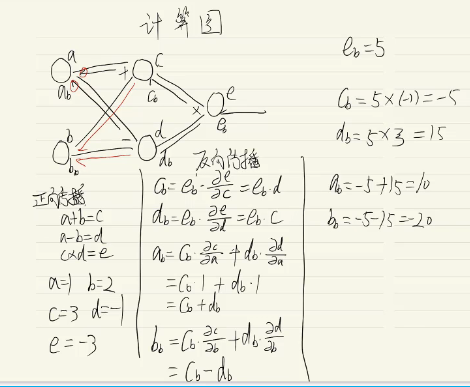 计算图
a
a_b
+
c
c_b
×
e
e_b
b
b_b
−
d
d_b
正向传播
a+b=c
a-b=d
c×d=e
a=1 b=2
c=3 d=-1
e=-3
反向传播
c_b=e_b·∂e/∂c=e_b·d
d_b=e_b·∂e/∂d=e_b·c
a_b=c_b·∂c/∂a+d_b·∂d/∂a
=c_b·1+d_b·1
=c_b+d_b
b_b=c_b·∂c/∂b+d_b·∂d/∂b
=c_b-d_b
e_b=5
c_b=5×(-1)=-5
d_b=5×3=15
a_b=-5+15=10
b_b=-5-15=-20